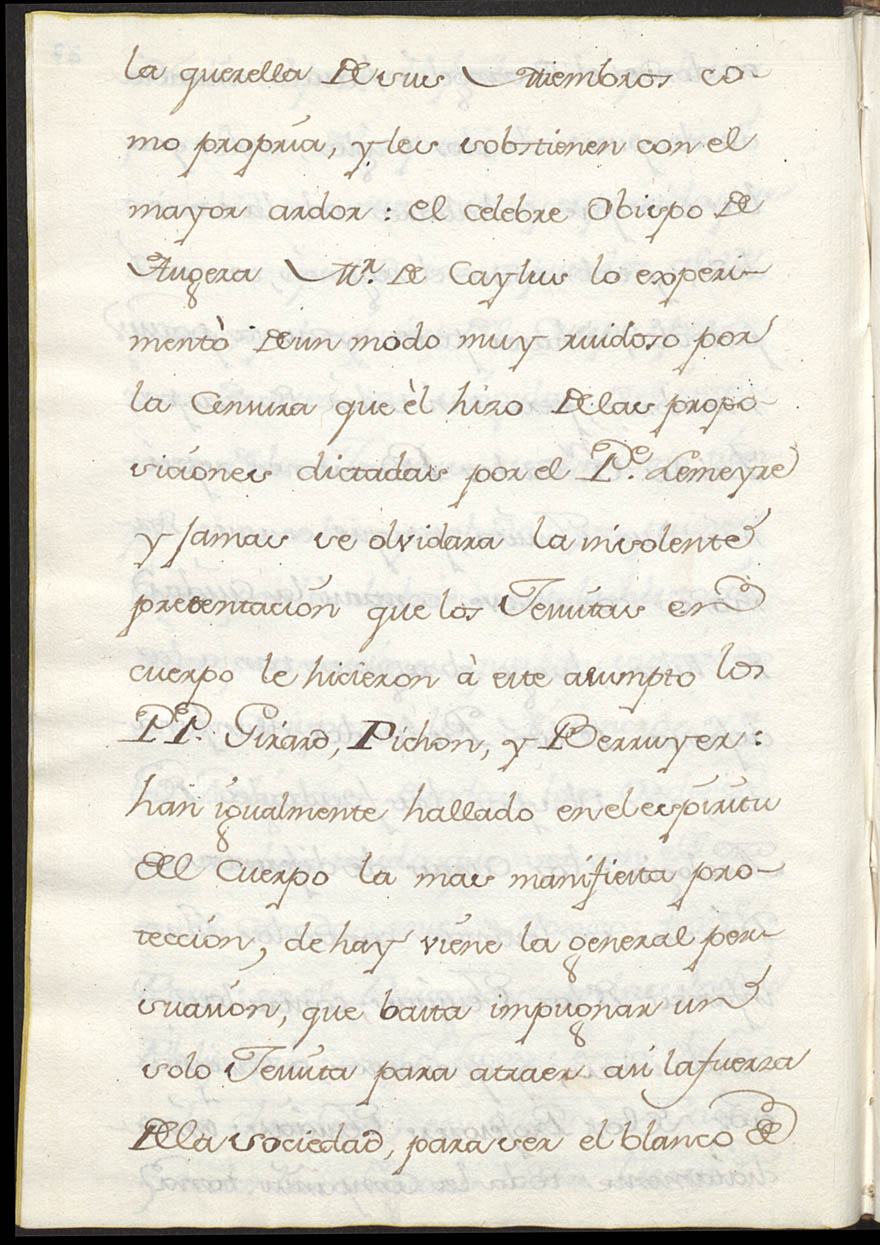 la querella de sus Miembros co-
mo propria, y les sobstienen con el
mayor ardor: el celebre Obispo de
Augera Mr. de Caylus lo experi-
mentò de un modo muy ruidoso por
la Censura que èl hizo de las propo-
siciones dictadas por el Pe. Lemeyre
y Jamas se olvidara la insolente
presentacion que los Jesuitas en
cuerpo le hicieron à este asumpto los
PP. Girard, Pichon, y Berruyer:
han igualmente hallado en el espiritu
del Cuerpo la mas manifiesta pro-
teccion, de hay viene la general per-
suasion, que basta impugnar un
solo Jesuita para atraer asi la fuerza
de la sociedad, para ser el blanco de